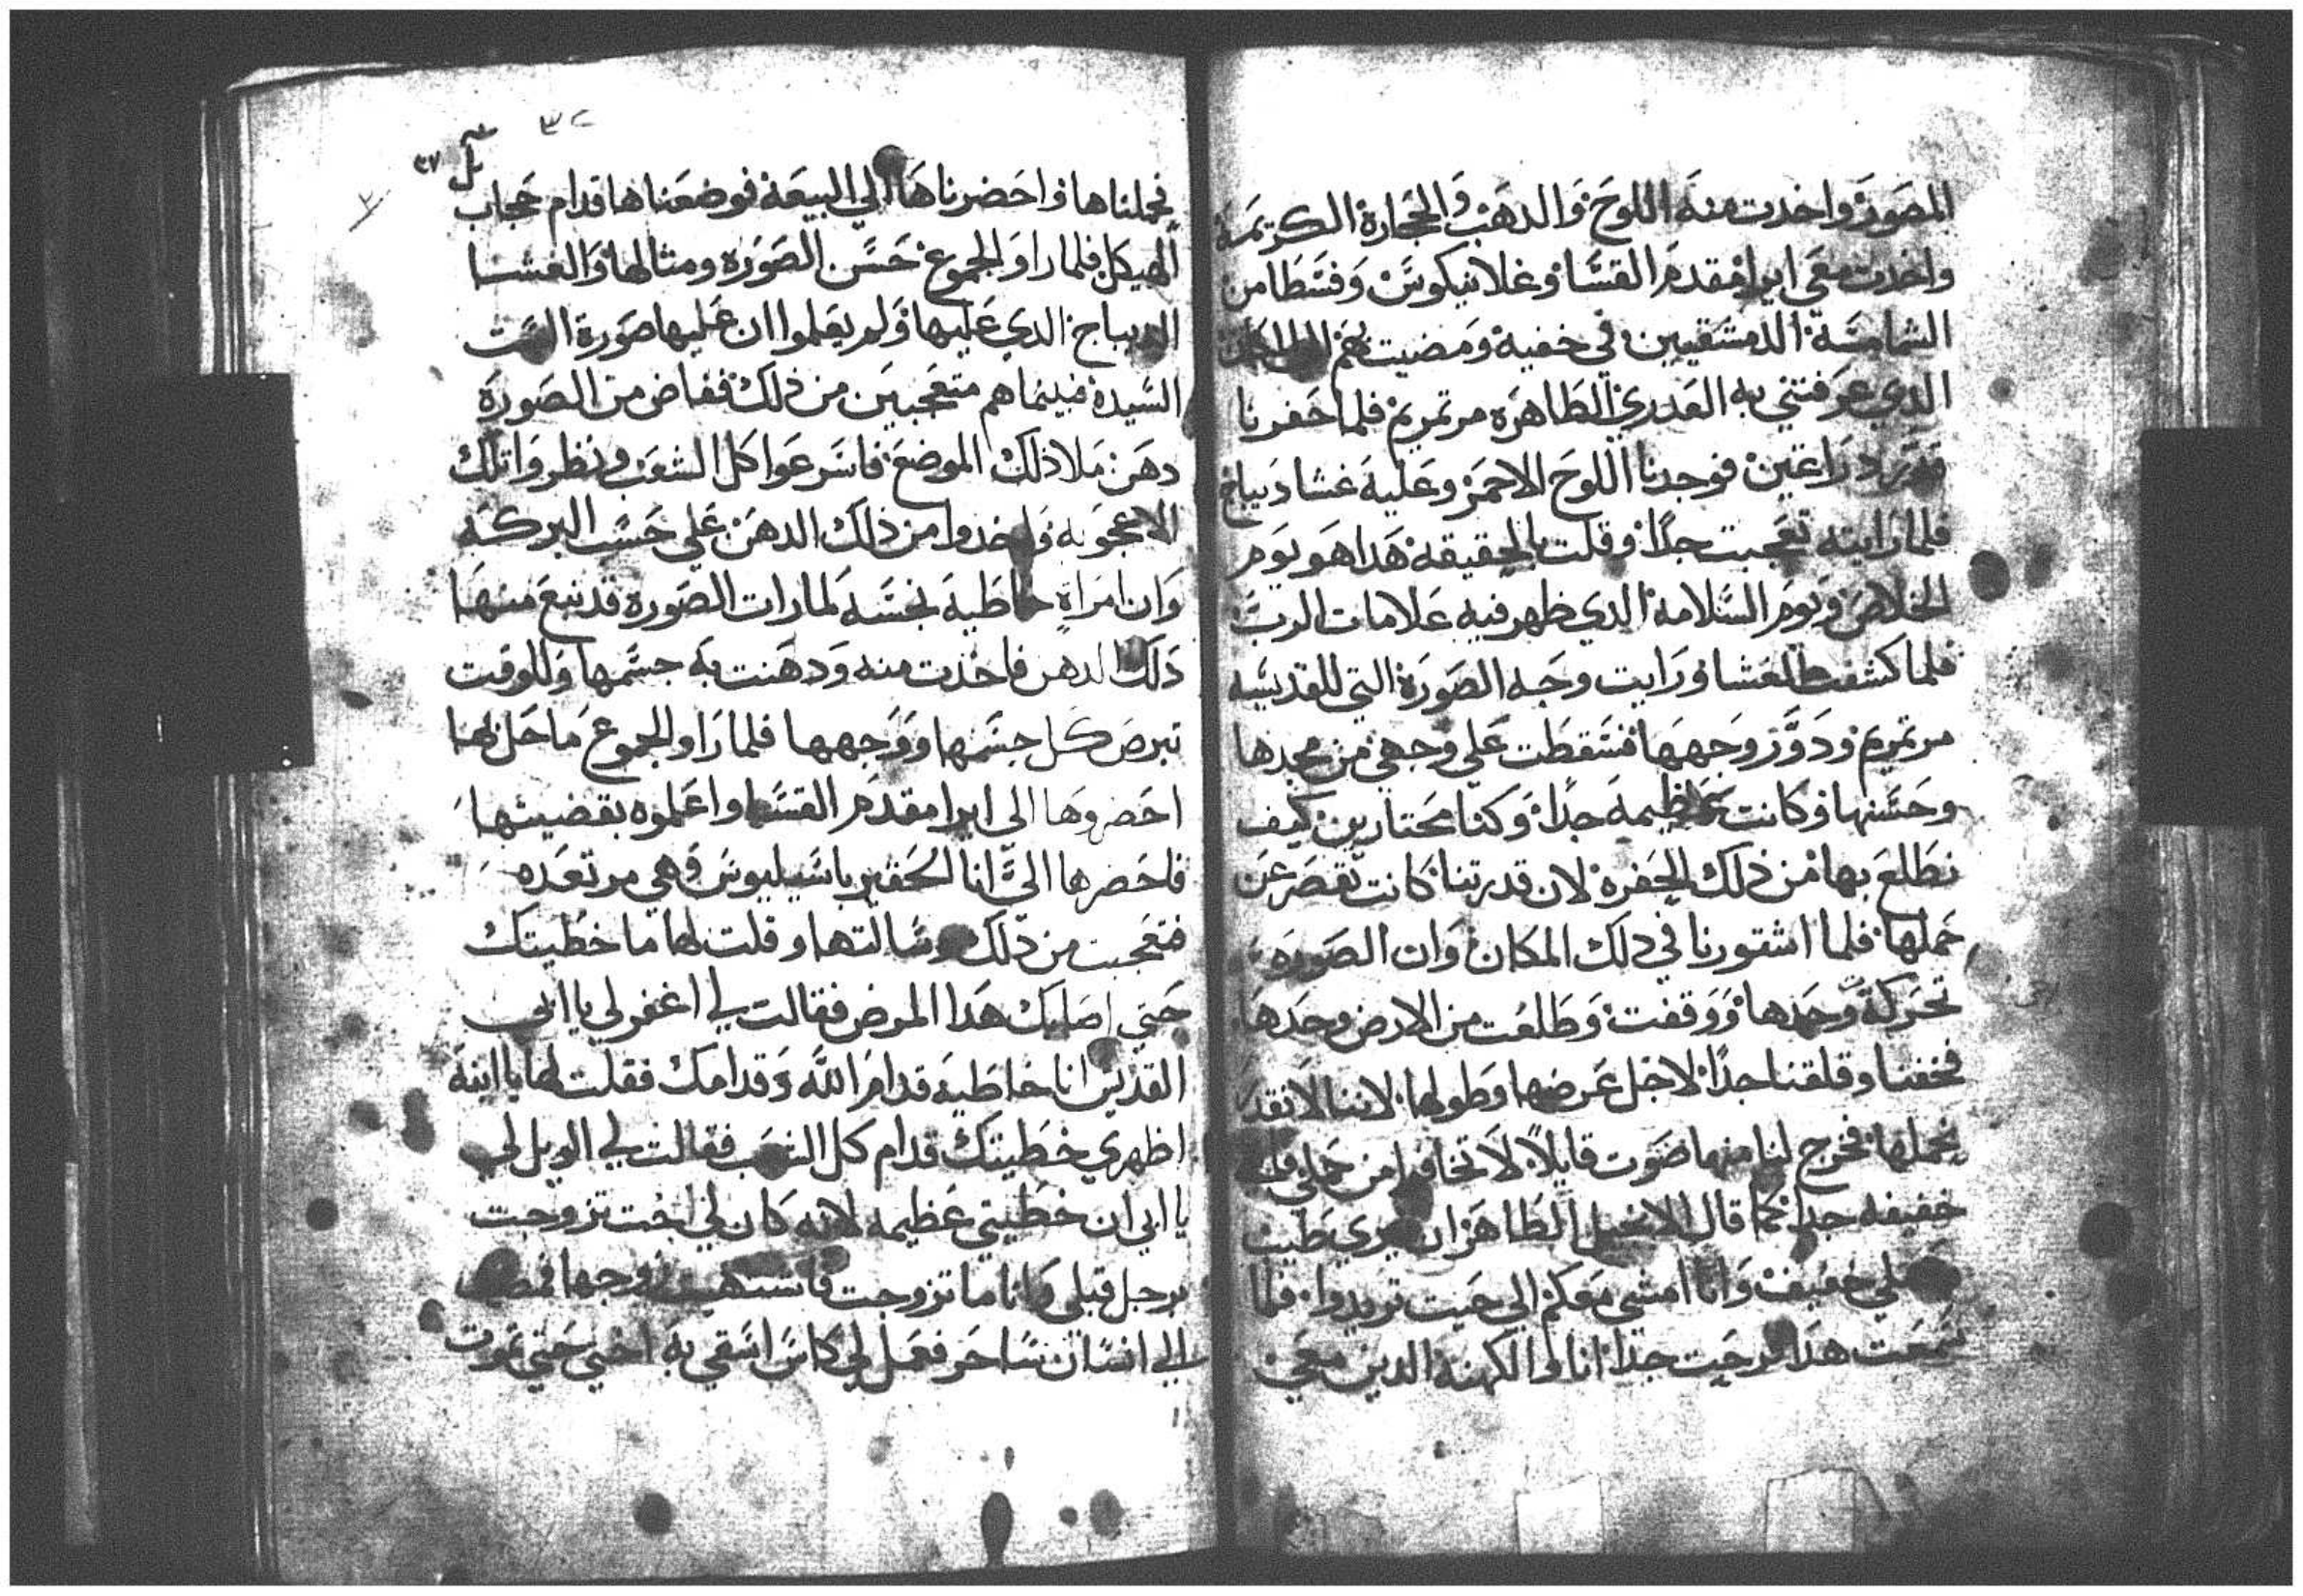 المصور واخدت منه اللوح والدهب والحجارة الكريمة
واخدت معي ابرا مقدم القسا وغلانيكوس وقسطا من
الشمامسة الدمشقيين في خفية ومضيت بهم الي المكان
الدي عرفتني به العدري الطاهره مرتمريم فلما حفرنا
دراعين فوجدنا اللوح الاحمر وعليه غشا ديباج
فلما رايته تعجبت جدا وقلت بالحقيقه هدا هو يوم
الخلاص ويوم السلامة الدي ظهر فيه علامات الرب
فلما كشفت الغشا ورايت وجه الصورة التي للقديسه
مرتمريم ودور وجهها فسقطت علي وجهي من مجدها
وحسنها وكانت عظيمه جدا وكنا محتارين كيف
نطلع بها من ذلك الحفرة لان قدرتنا كانت تقصر عن
حملها فلما اشتورنا في دلك المكان وان الصوره
تحركة وحدها ووقفت وطلعت من الارض وحدها
فخفنا وقلقنا جدا لاجل عرضها وطولها لاننا لا نقدر
نحملها فخرج لنا منها صوت قايلا لا تخافوا من حملي فانه
خفيفه جدا كما قال الانجيل الطاهر ان نيري طيب
وحملي خفيف وانا امشي معكم الي حيت تريدوا فلما
سمعت هدا فرحت جدا انا والكهنة الدين معي
٣٢
٣٧
فحملناها واحضرناها الي البيعة فوضعناها قدام حجاب
الهيكل فلما راو الجموع حسن الصوره ومثالها والغشا
الديباج الدي عليها ولم يعلموا ان عليها صورة الست
السيدة فبينما هم متعجبين من ذلك ففاض من الصورة
دهن ملا ذلك الموضع فاسرعوا كل الشعب ونظروا تلك
الاعجوبه واخدوا من ذلك الدهن علي حسب البركه
وان امراة خاطية نجسه لما رات الصورة قد نبع منها
دلك الدهن فاخذت منه ودهنت به جسمها وللوقت
تبرص كل جسمها ووجهها فلما راو الجموع ما حل بها
احضروها الي ابرا مقدم القسا واعلموه بقضيتها
فاحضرها الي انا الحقير باسيليوس وهي مرتعده
فتعجبت من دلك وسالتها وقلت لها ما خطيتك
حتي اصابك هدا المرض فقالت لي اغفر لي يا ابي
القديس انا خاطيه قدام الله وقدامك فقلت لها يا ابنة
اظهري خطيتك قدام كل الشعب فقالت لي الويل لي
يا ابي ان خطيتي عظيمه لانه كان لي اخت تزوجت
برجل قبلي وانا ما تزوجت فاشتهيت زوجها فمضيت
الي انسان ساحر فعمل لي كاس اسقي به اختي حتي تموت